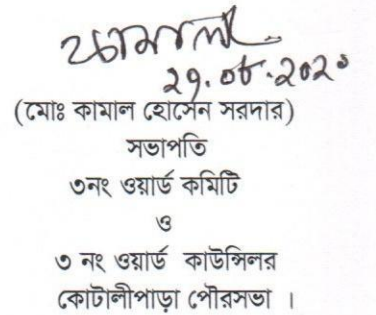 কামাল
২৭.০৮.২০২০
(মোঃ কামাল হোসেন সরদার)
সভাপতি
৩নং ওয়ার্ড কমিটি
ও
৩ নং ওয়ার্ড কাউন্সিলর
কোটালীপাড়া পৌরসভা ।